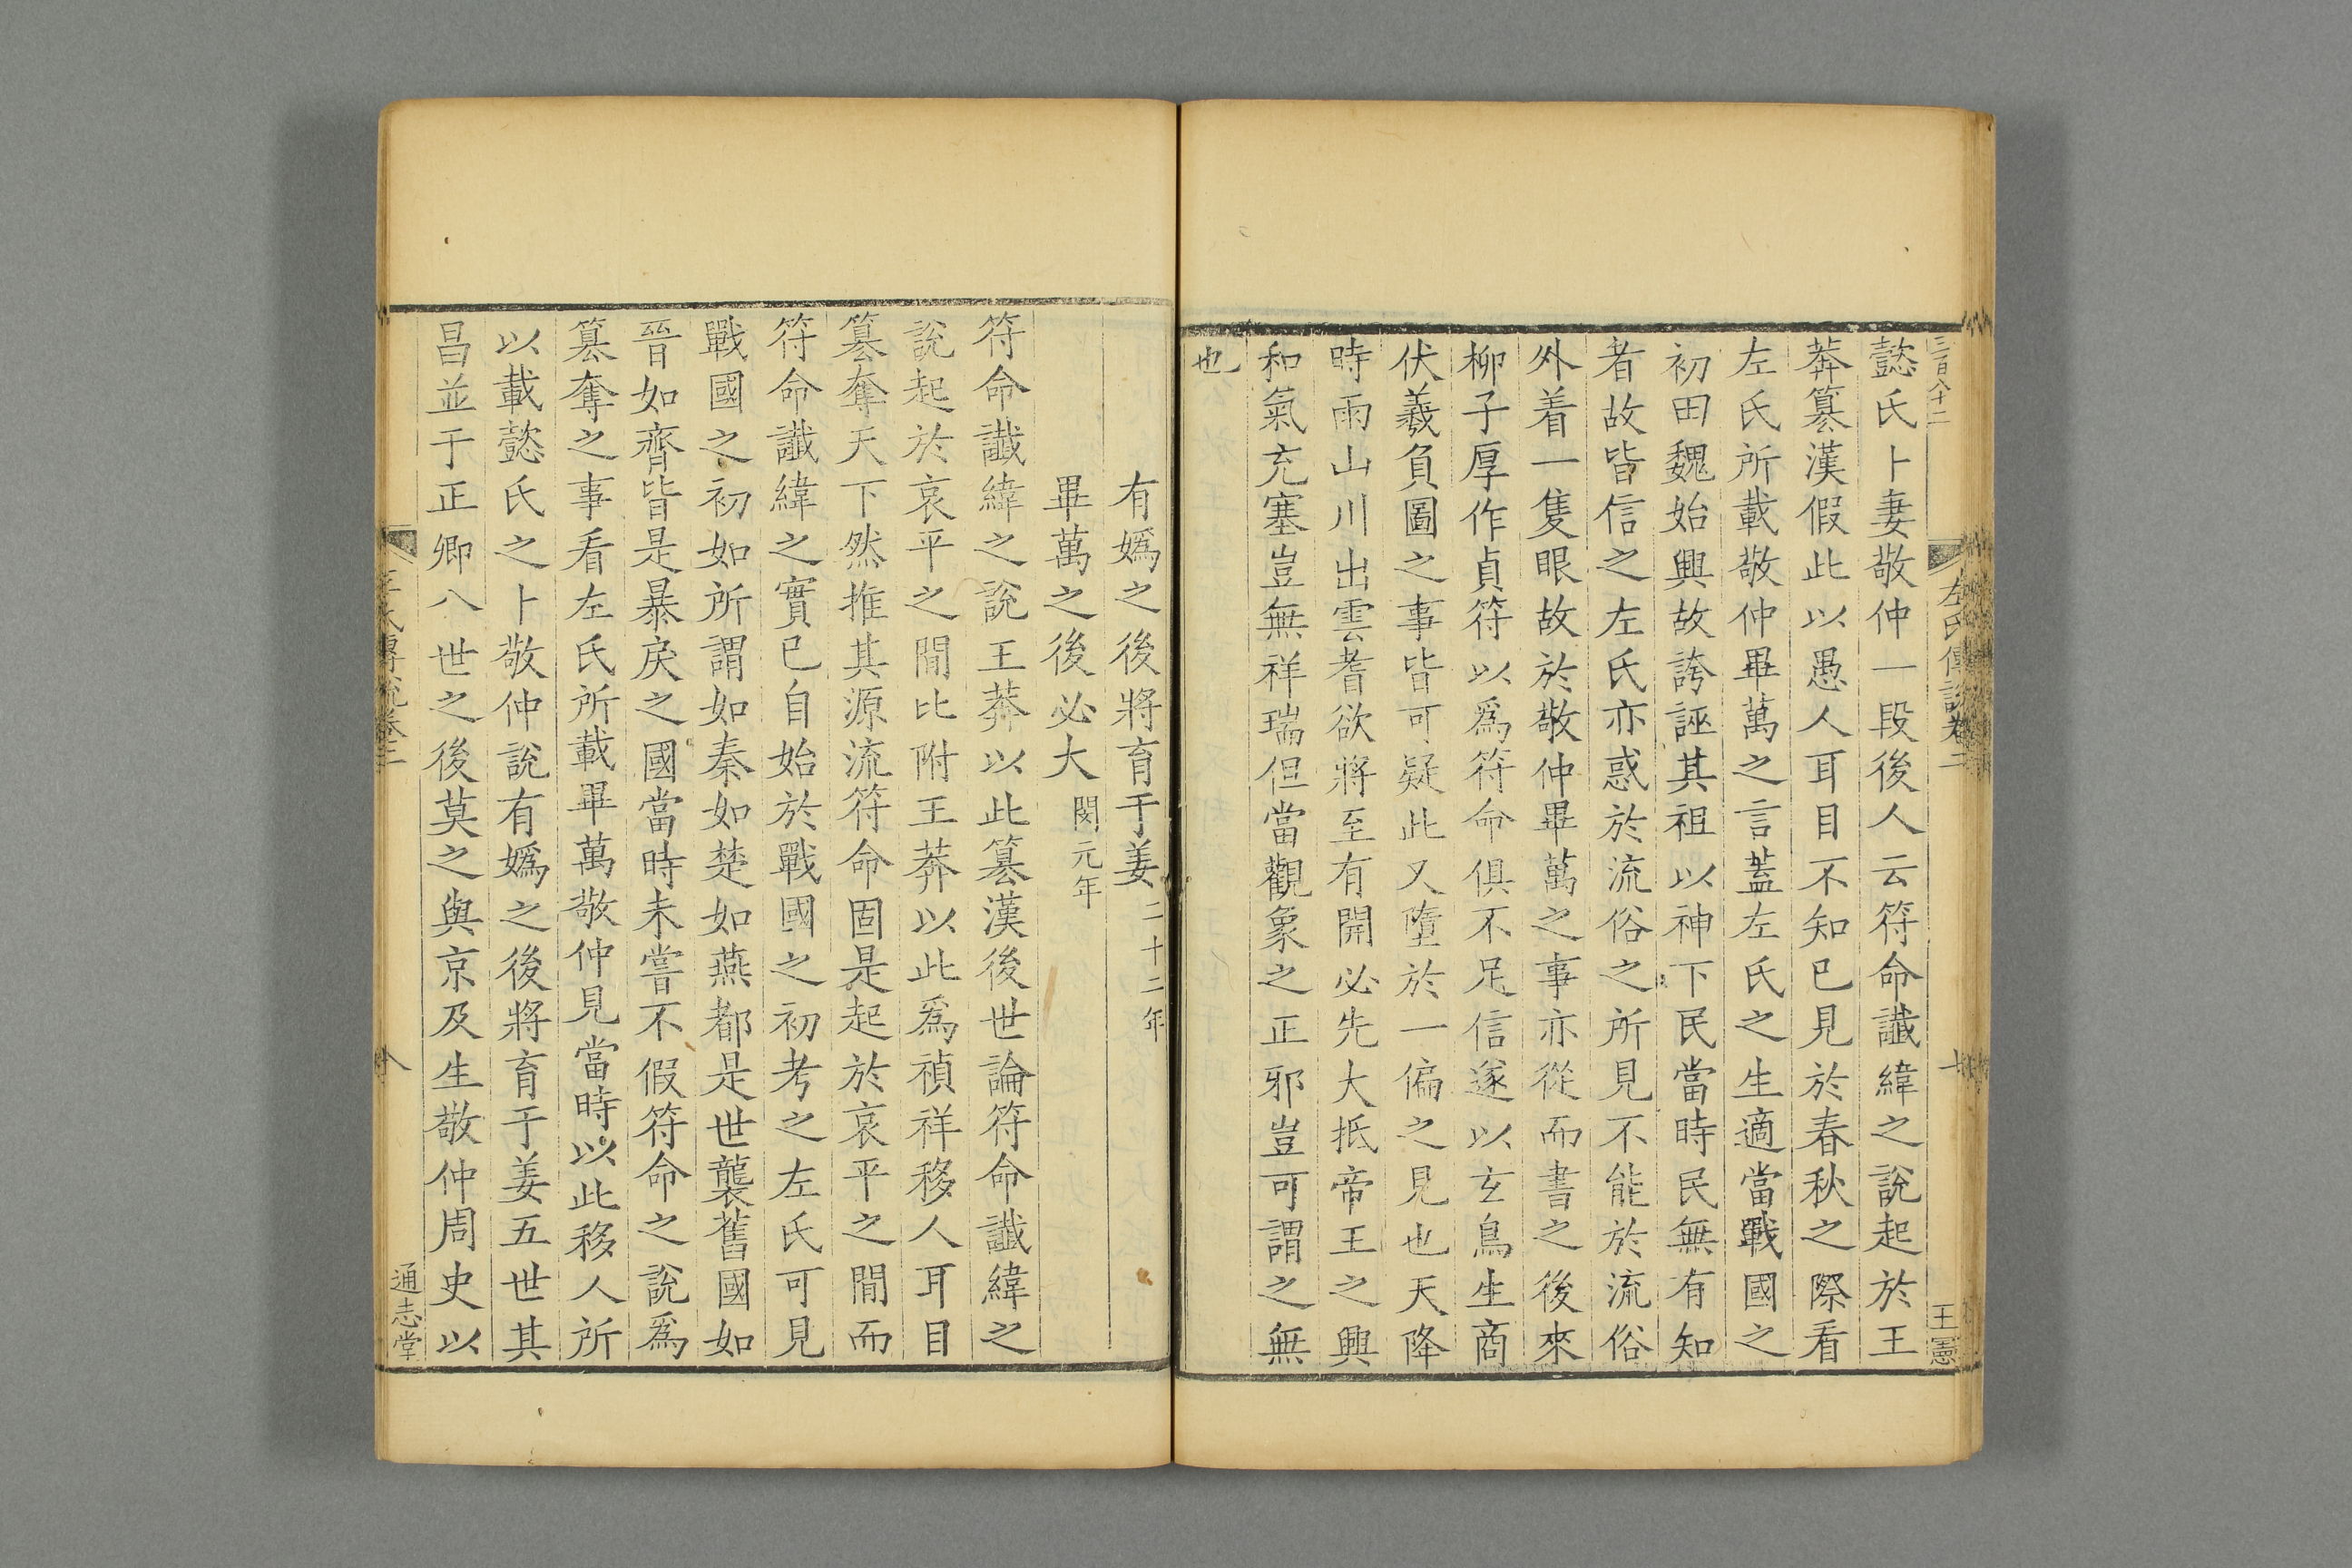 三百八十二
左氏傳說卷二
七
王憲
懿氏卜妻敬仲一段後人云符命讖緯之說起於王
莽篡漢假此以愚人耳目不知已見於春秋之際看
左氏所載敬仲畢萬之言蓋左氏之生適當戰國之
初田魏始興故誇誣其祖以神下民當時民無有知
者故皆信之左氏亦惑於流俗之所見不能於流俗
外着一隻眼故於敬仲畢萬之事亦從而書之後來
柳子厚作貞符以爲符命俱不足信遂以玄鳥生商
伏羲負圖之事皆可疑此又墮於一偏之見也天降
時雨山川出雲耆欲將至有開必先大抵帝王之興
和氣充塞豈無祥瑞但當觀象之正邪豈可謂之無
也
有嬀之後將育于姜二十二年
畢萬之後必大閔元年
符命讖緯之說王莽以此篡漢後世論符命讖緯之
說起於哀平之間比附王莽以此爲禎祥移人耳目
篡奪天下然推其源流符命固是起於哀平之間而
符命讖緯之實已自始於戰國之初考之左氏可見
戰國之初如所謂如秦如楚如燕都是世襲舊國如
晉如齊皆是暴戾之國當時未嘗不假符命之說爲
篡奪之事看左氏所載畢萬敬仲見當時以此移人所
以載懿氏之卜敬仲說有嬀之後將育于姜五世其
昌並于正卿八世之後莫之與京及生敬仲周史以
八
通志堂